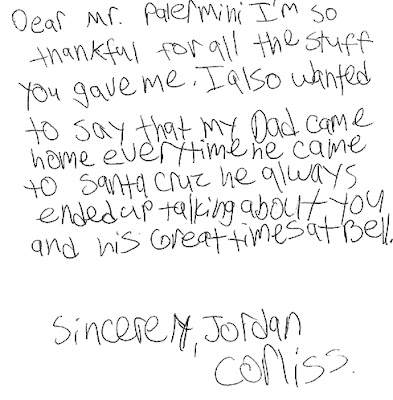 Dear Mr. Palermini I'm so
thankful for all the stuff
you gave me. I also wanted
to say that my Dad came
home everytime he came
to Santa Cruz he always
ended up talking about you
and his Great times at Bell.
Sincerely, Jordan
Coniss.